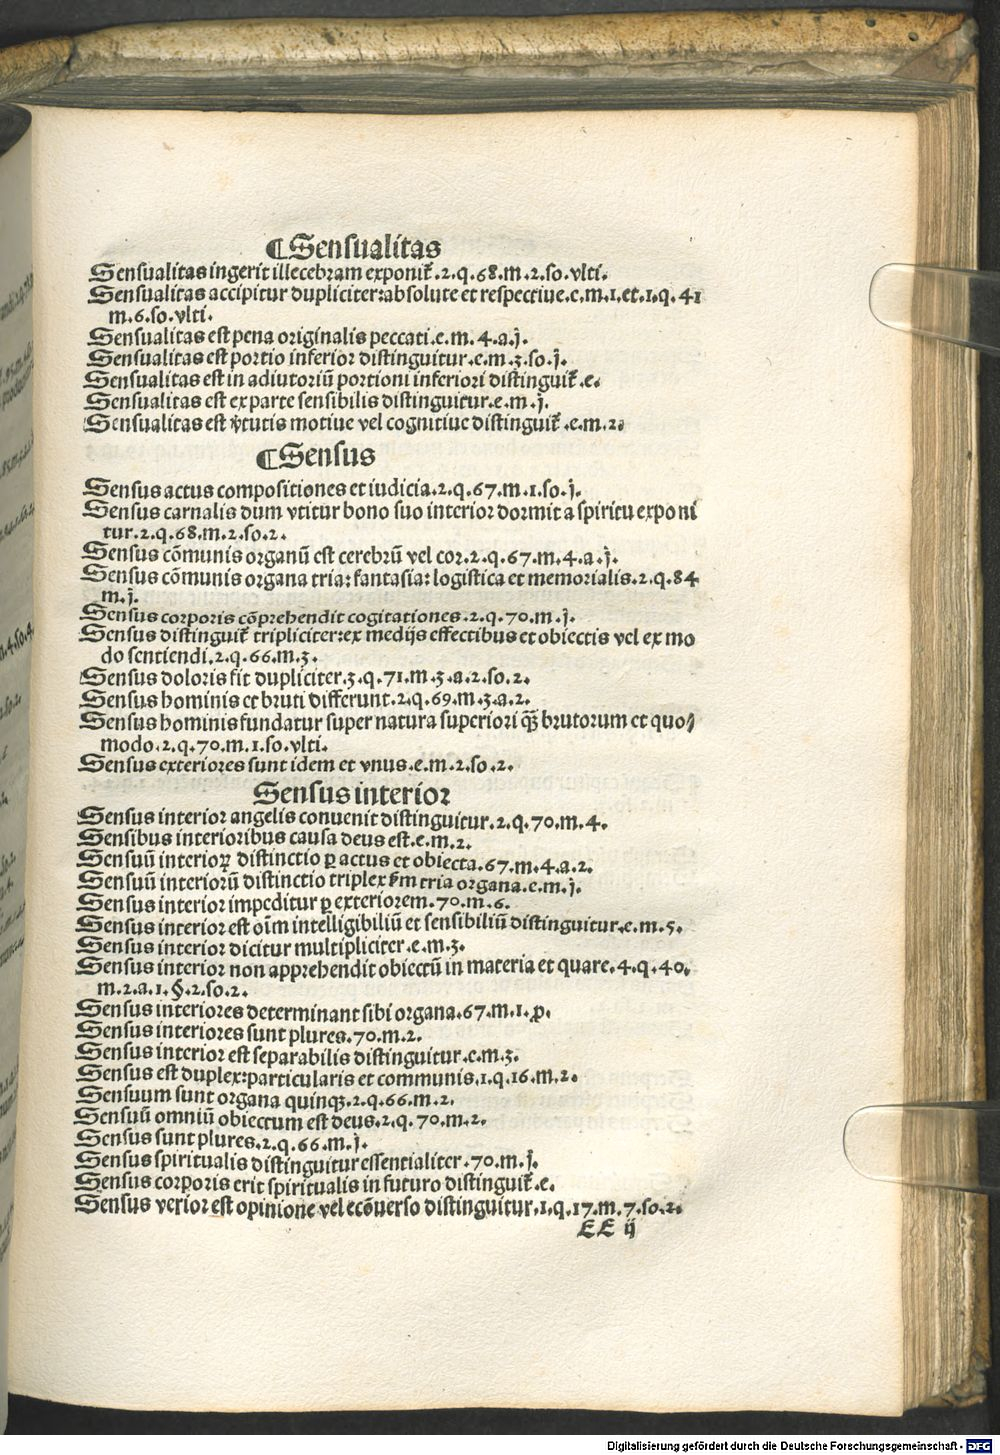 ¶Sensualitas
Sensualitas ingerit illecebram exponit̄.2.q.68.m.2.so.vlti.
Sensualitas accipitur dupliciter:absolute et respectiue.e.m.1.et.1.q.41
m.6.so.vlti.
Sensualitas est pena originalis peccati.e.m.4.a.j.
Sensualitas est portio inferior distinguitur.e.m.3.so.j.
Sensualitas est in adiutoriū portioni inferiori distinguit̄.e.
Sensualitas est ex parte sensibilis distinguitur.e.m.j.
Sensualitas est v̄tutis motiue vel cognitiue distinguit̄.e.m.2.
¶Sensus
Sensus actus compositiones et iudicia.2.q.67.m.1.so.j.
Sensus carnalis dum vtitur bono suo interior dormit a spiritu exponi
tur.2.q.68.m.2.so.2.
Sensus cōmunis organū est cerebrū vel cor.2.q.67.m.4.a.j.
Sensus cōmunis organa tria:fantasia:logistica et memorialis.2.q.84
m.j.
Sensus corporis cōprehendit cogitationes.2.q.70.m.j.
Sensus distinguit̄ tripliciter:ex medijs effectibus et obiectis vel ex mo
do sentiendi.2.q.66.m.3.
Sensus doloris fit dupliciter.3.q.71.m.3.a.2.so.2.
Sensus hominis et bruti differunt.2.q.69.m.3.a.2.
Sensus hominis fundatur super natura superiori q̄ꝫ brutorum et quo/
modo.2.q.70.m.1.so.vlti.
Sensus exteriores sunt idem et vnus.e.m.2.so.2.
Sensus interior
Sensus interior angelis conuenit distinguitur.2.q.70.m.4.
Sensibus interioribus causa deus est.e.m.2.
Sensuū interioꝝ distinctio ꝑ actus et obiecta.67.m.4.a.2.
Sensuū interiorū distinctio triplex s̄m tria organa.e.m.j.
Sensus interior impeditur ꝑ exteriorem.70.m.6.
Sensus interior est oīm intelligibiliū et sensibiliū distinguitur.e.m.5.
Sensus interior dicitur multipliciter.e.m.3.
Sensus interior non apprehendit obiectū in materia et quare.4.q.40.
m.2.a.1.§.2.so.2.
Sensus interiores determinant sibi organa.67.m.1.ꝓ.
Sensus interiores sunt plures.70.m.2.
Sensus interior est separabilis distinguitur.e.m.3.
Sensus est duplex:particularis et communis.1.q.16.m.2.
Sensuum sunt organa quinqꝫ.2.q.66.m.2.
Sensuū omniū obiectum est deus.2.q.70.m.2.
Sensus sunt plures.2.q.66.m.j.
Sensus spiritualis distinguitur essentialiter.70.m.j.
Sensus corporis erit spiritualis in futuro distinguit̄.e.
Sensus verior est opinione vel ecōuerso distinguitur.1.q.17.m.7.so.2.
EE ij
Digitalisierung gefördert durch die Deutsche Forschungsgemeinschaft - DFG